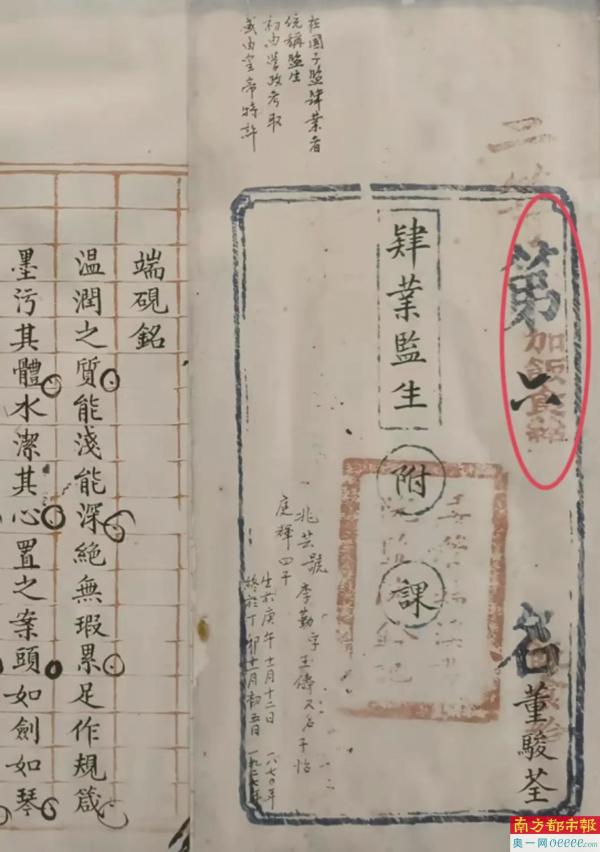 在國子監肄業者
統稱監生
初由学政考取
或由皇帝特許
第六
名
董駿荃
加飯食銀
肄業監生
附課
兆芸號 李勤字 玉儔 又名 干怡
庭稚四子
生於庚午十二月十二日 一八七〇年
終於丁卯十一月初五日 一九二七年
端硯銘
温潤之質能淺能深絕無瑕累足作規箴
墨污其體水潔其心置之案頭如劍如琴
南方都市報
奥一网oeeee.com